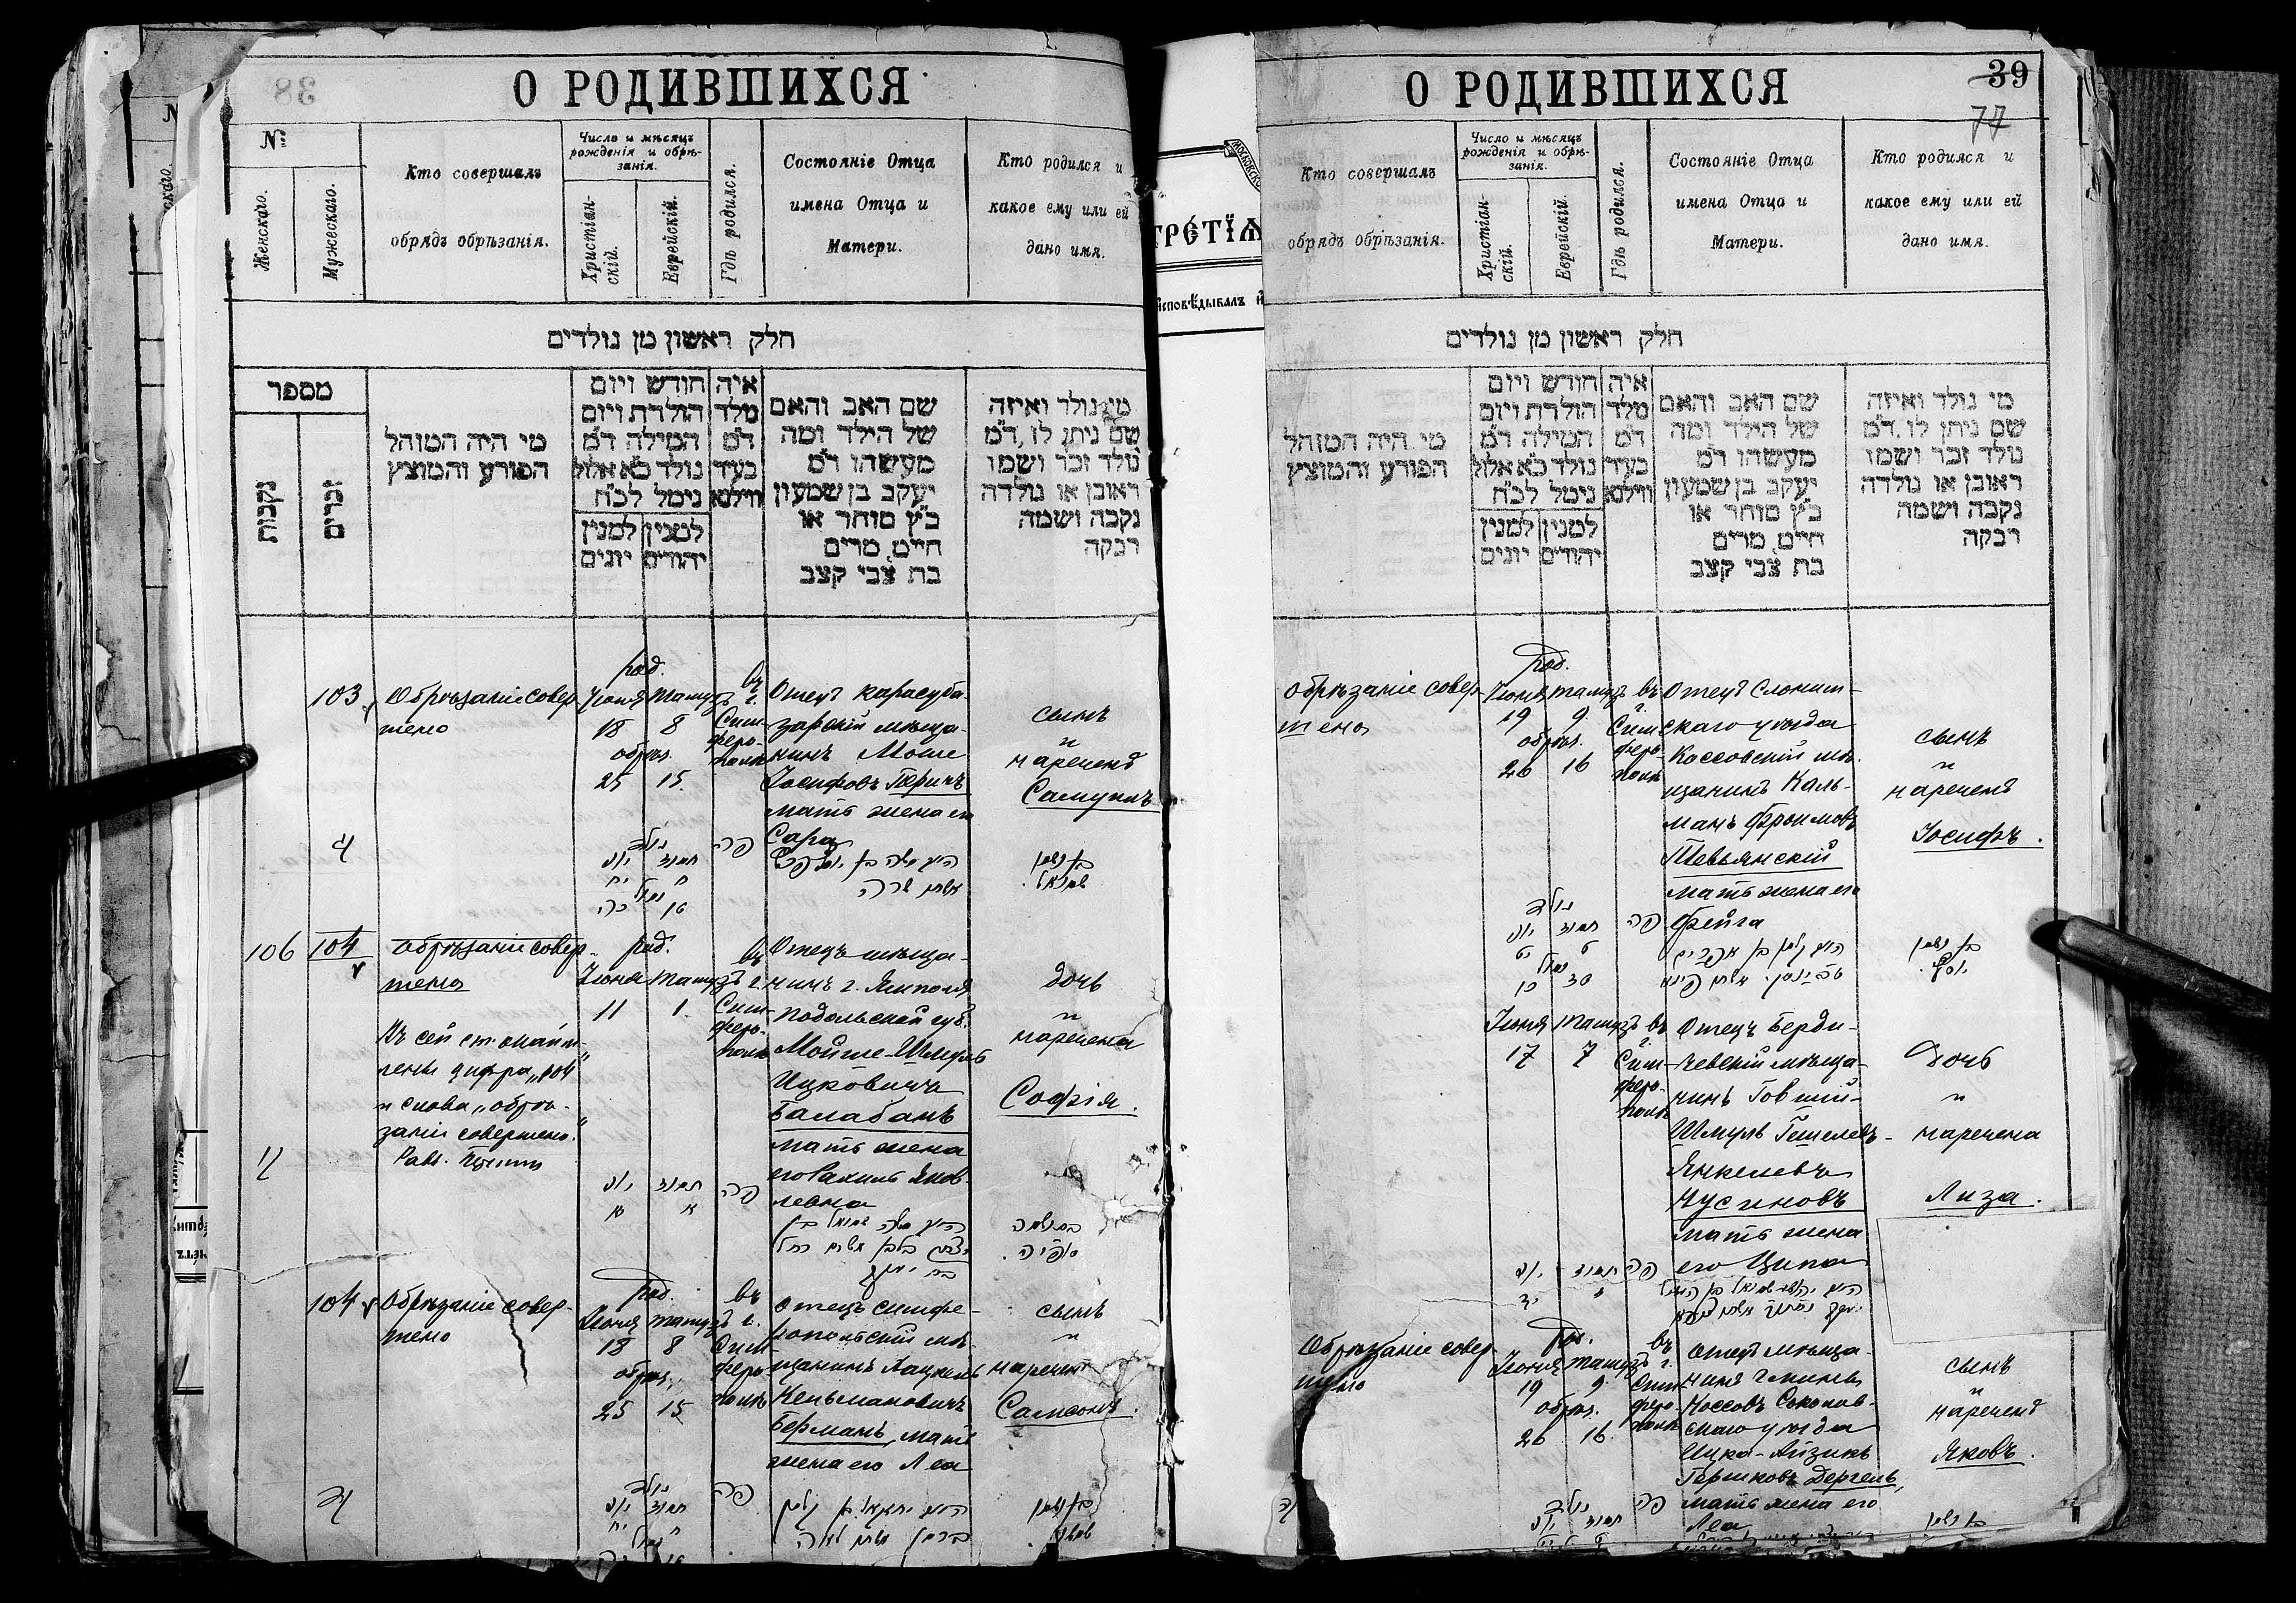 38
О РОДИВШИХСЯ
№
Женскаго.
Мужескаго.
Кто совершалъ
обрядъ обрѣзанія.
Число и мѣсяцъ
рожденія и обрѣ-
занія.
Христіан-
скій.
Еврейскій.
Гдѣ родился.
Состояніе Отца
имена Отца и
Матери.
Кто родился и
какое ему или ей
дано имя.
חלק ראשון מן נולדים
מספר
נקבות
זכרים
מי היה המוהל
הפורע והמוצץ
חודש ויום
הולדת ויום
המילה ד"מ
נולד כ"א אלול
נימל לכ"ח
למנין
יהודים
למנין
יונים
איה
מלד
ד"מ
בעיד
ווילנא
שם האב והאם
של הילד ומה
מעשהו ד"מ
יעקב בן שמעון
כ"ץ סוחר או
חיים, מרים
בת צבי קצב
מי נולד ואיזה
שם ניתן לו, ד"מ
נולד זכר ושמו
ראובן או נולדה
נקבה ושמה
רבקה
103
Обрѣзаніе совер
шено
род.
Іюня Тамузъ
18 8
обрѣз.
25 15.
въ
г.
Сим-
феро-
поль
Отецъ карасуба-
зарскій мѣща-
нинъ Моше
Іосифовъ Перичъ
мать жена его
Сара
сынъ
и
нареченъ
Самуилъ
נולד
יוני תמוז
יח ח
נמול
כה
פה
אשתו שרה
בן זכר
שמואל.
106 104
обрѣзаніе совер-
шено
Въ сей ст. значит-
ся цифра „104“
и слова „обрѣ-
заніе совершено.“
Рав.
род.
Іюня Тамузъ
11 1
въ
г.
Сим-
феро-
поль
Отецъ мѣща-
нинъ г. Ямполя
Подольской губ.
Мойше-Шмуль
Ицковичъ
Балабанъ
мать жена
его Рахиль Яков-
левна
дочь
и
наречена
Софія.
יוני תמוז
יא א
פה
סופיה.
104
Обрѣзаніе совер-
шено
род.
Іюня Тамузъ
18 8
обрѣз.
25 15
въ
г.
Сим
феро-
поль
Отецъ симфе-
ропольскій мѣ-
щанинъ Хацкель
Кельмановичъ
Берманъ, мать
жена его Леа
сынъ
и
нареченъ
Самсонъ.
נולד
יוני תמוז
יח ח
נמול
פה
ברמן אשתו לאה
39
77
О РОДИВШИХСЯ
Кто совершалъ
обрядъ обрѣзанія.
Число и мѣсяцъ
рожденія и обрѣ-
занія.
Христіан-
скій.
Еврейскій.
Гдѣ родился.
Состояніе Отца
имена Отца и
Матери.
Кто родился и
какое ему или ей
дано имя.
חלק ראשון מן נולדים
מי היה המוהל
הפורע והמוצץ
חודש ויום
הולדת ויום
המילה ד"מ
נולד כ"א אלול
נימל לכ"ח
למנין
יהודים
למנין
יונים
איה
מלד
ד"מ
בעיד
ווילנא
שם האב והאם
של הילד ומה
מעשהו ד"מ
יעקב בן שמעון
כ"ץ סוחר או
חיים, מרים
בת צבי קצב
מי נולד ואיזה
שם ניתן לו, ד"מ
נולד זכר ושמו
ראובן או נולדה
נקבה ושמה
רבקה
обрѣзаніе совер
шено
род.
Іюня Тамузъ
19 9.
обрѣз.
26 16
въ
г.
Сим
феро-
поль
Отецъ Слоним-
скаго уѣзда
Коссовскій мѣ-
щанинъ Каль-
манъ Фроимовъ
Шевьянскій
мать жена его
Фейга
сынъ
и
нареченъ
Іосифъ.
נולד
יוני תמוז
יט ט
נמול
פה
יוסף.
Іюня Тамузъ
17 7
въ
г.
Сим-
феро-
поль
Отецъ Берди-
чевскій мѣща-
нинъ Говшій-
Шмуль Гешелевъ-
Янкелевъ
Нусиновъ
мать жена
его Ципа
дочь
и
наречена
Лиза.
יוני תמוז
פה
Обрѣзаніе совер
шено
род.
Іюня Тамузъ
19 9
обрѣз.
26 16.
въ
г.
Сим
феро-
поль
Отецъ мѣща-
нинъ
Коссовъ Соколов-
скаго уѣзда
Ицко-Айзикъ
Гершковъ Дергель,
мать жена его
Леа
сынъ
и
нареченъ
Яковъ.
נולד
יוני תמוז
פה
ТРЕТІЯ
исповѣдывалъ
МОСКОВСКО